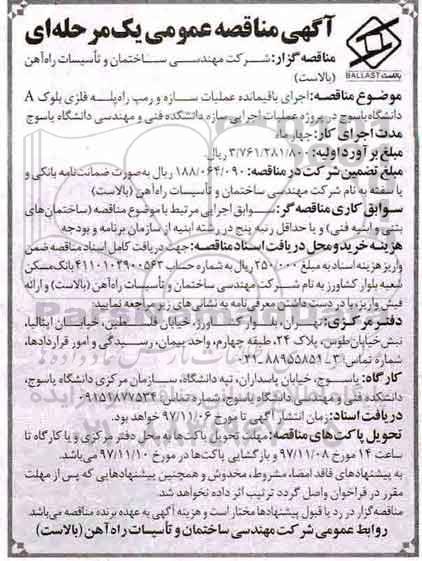 آگهی مناقصه عمومی یک مرحله‌ای
بالاست BALLAST
مناقصه گزار: شرکت مهندسی ساختمان و تأسیسات راه‌آهن
(بالاست)
موضوع مناقصه: اجرای باقیمانده عملیات سازه و رمپ راه‌پله فلزی بلوک A
دانشگاه یاسوج در پروژه عملیات اجرایی سازه دانشکده فنی و مهندسی دانشگاه یاسوج
مدت اجرای کار: چهار ماه
مبلغ برآورد اولیه: ۳/۷۶۱/۲۸۱/۸۰۰ ریال.
مبلغ تضمین شرکت در مناقصه: ۱۸۸/۰۶۴/۰۹۰ ریال به صورت ضمانت‌نامه بانکی و
یا سفته به نام شرکت مهندسی ساختمان و تأسیسات راه‌آهن (بالاست)
سوابق کاری مناقصه گر: سوابق اجرایی مرتبط با موضوع مناقصه (ساختمان‌های
بتنی و ابنیه فنی) و یا حداقل رتبه پنج در رشته ابنیه از سازمان برنامه و بودجه
هزینه خرید و محل دریافت اسناد مناقصه: جهت دریافت کامل اسناد مناقصه ضمن
واریز هزینه اسناد به مبلغ ۲۵۰/۰۰۰ ریال به شماره حساب ۴۱۱۰۱۰۲۹۰۰۵۶۳ بانک مسکن
شعبه بلوار کشاورز به نام شرکت مهندسی ساختمان و تأسیسات راه‌آهن (بالاست) و ارائه
فیش واریز، با در دست داشتن معرفی‌نامه به نشانی‌های زیر مراجعه نمایید:
دفتر مرکزی: تهران، بلوار کشاورز، خیابان فلسطین، خیابان ایتالیا،
نبش خیابان طوس، پلاک ۲۴، طبقه چهارم، واحد پیمان، رسیدگی و امور قراردادها،
شماره تماس: ۳ - ۸۸۹۵۵۸۵۱ - ۰۲۱
کارگاه: یاسوج، خیابان پاسداران، تپه دانشگاه، سازمان مرکزی دانشگاه یاسوج،
دانشکده فنی و مهندسی دانشگاه یاسوج، شماره تماس: ۰۹۱۵۱۸۷۷۵۳۴
دریافت اسناد: زمان انتشار آگهی تا مورخ ۹۷/۱۱/۰۶ خواهد بود.
تحویل پاکت‌های مناقصه: مهلت تحویل پاکت‌ها به محل دفتر مرکزی و یا کارگاه تا
ساعت ۱۴ مورخ ۹۷/۱۱/۰۸ و بازگشایی پاکت‌ها در مورخ ۹۷/۱۱/۱۰ می‌باشد.
به پیشنهادهای فاقد امضا، مشروط، مخدوش و همچنین پیشنهادهایی که پس از مهلت
مقرر در فراخوان واصل گردد ترتیب اثر داده نخواهد شد.
مناقصه گزار در رد یا قبول پیشنهادها مختار است و هزینه آگهی به عهده برنده مناقصه می‌باشد
روابط عمومی شرکت مهندسی ساختمان و تأسیسات راه‌آهن (بالاست)